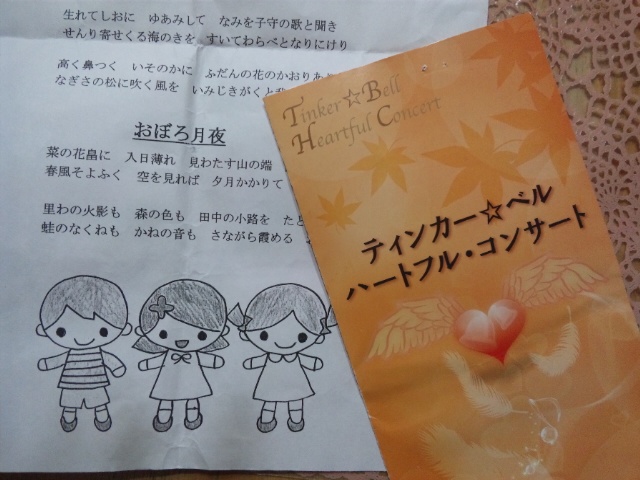 生れてしおに　ゆあみして　なみを子守の歌と聞き
せんり寄せくる海のきを　すいてわらべとなりにけり
高く鼻つく　いそのかに　ふだんの花のかおりあ
なぎさの松に吹く風を　いみじきがくと
おぼろ月夜
菜の花畠に　入日薄れ　見わたす山の端
春風そよふく　空を見れば　夕月かかりて
里わの火影も　森の色も　田中の小路を　たど
蛙のなくねも　かねの音も　さながら霞める
Tinker☆Bell
Heartful Concert
ティンカー☆ベル
ハートフル・コンサート